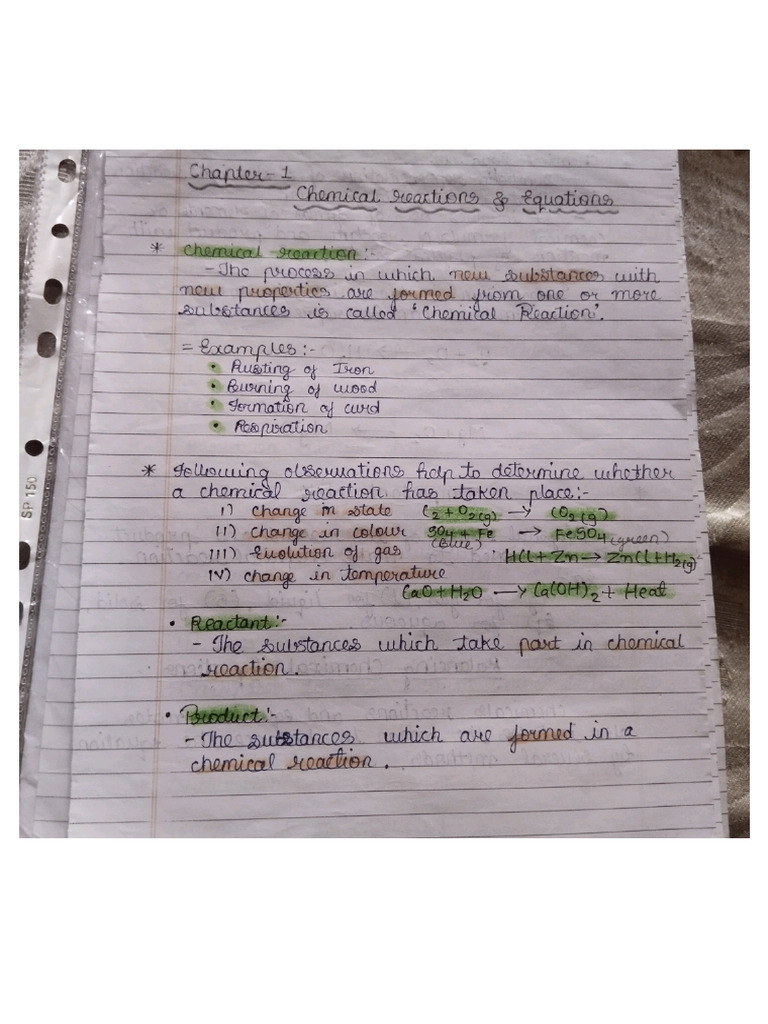 Chapter-1
Chemical reactions & Equations
* Chemical reaction:-
- The process in which new substances with
new properties are formed from one or more
substances is called 'Chemical Reaction'.
= Examples:-
• Rusting of Iron
• Burning of wood
• Formation of curd
• Respiration
* Following observations help to determine whether
a chemical reaction has taken place:-
I) change in state C2 + O2(g) → CO2(g)
II) change in colour SO4 + Fe (Blue) → FeSO4 (green)
III) Evolution of gas HCl + Zn → ZnCl + H2(g)
IV) change in temperature
CaO + H2O → Ca(OH)2 + Heat
• Reactant:-
- The substances which take part in chemical
reaction.
• Product:-
- The substances which are formed in a
chemical reaction.
SP 150